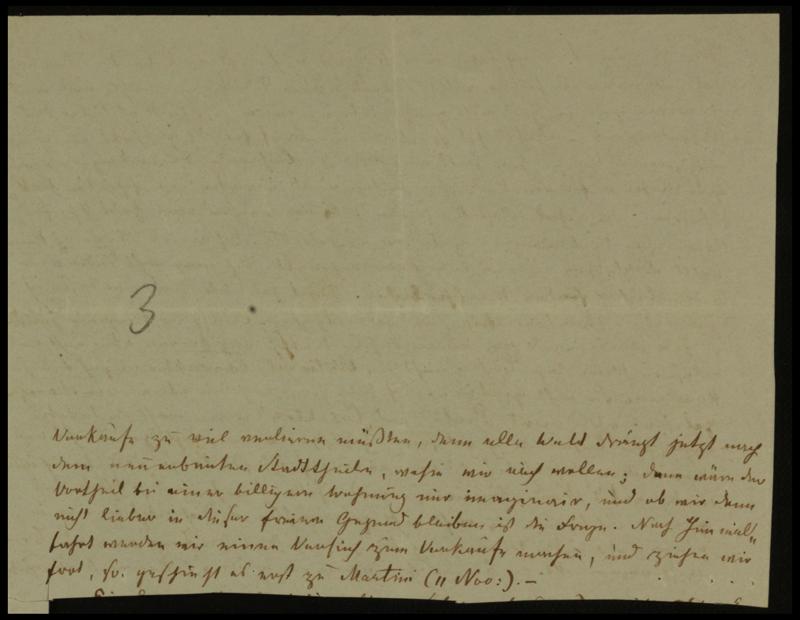 3
Verkaufe zu viel verlieren müßten, denn alle Welt drängt jetzt nach
dem neuerbauten Stadttheile, wohin wir auch wollen; dann wäre der
Vortheil bei einer billigern Wohnung nur imaginair, und ob wir dann
nicht lieber in dieser freien Gegend bleiben ist die Frage. Nach Himmel„
fahrt werden wir einen Versuch zum Verkaufe machen, und ziehen wir
fort, so geschieht es erst zu Martini (11 Nov:). –